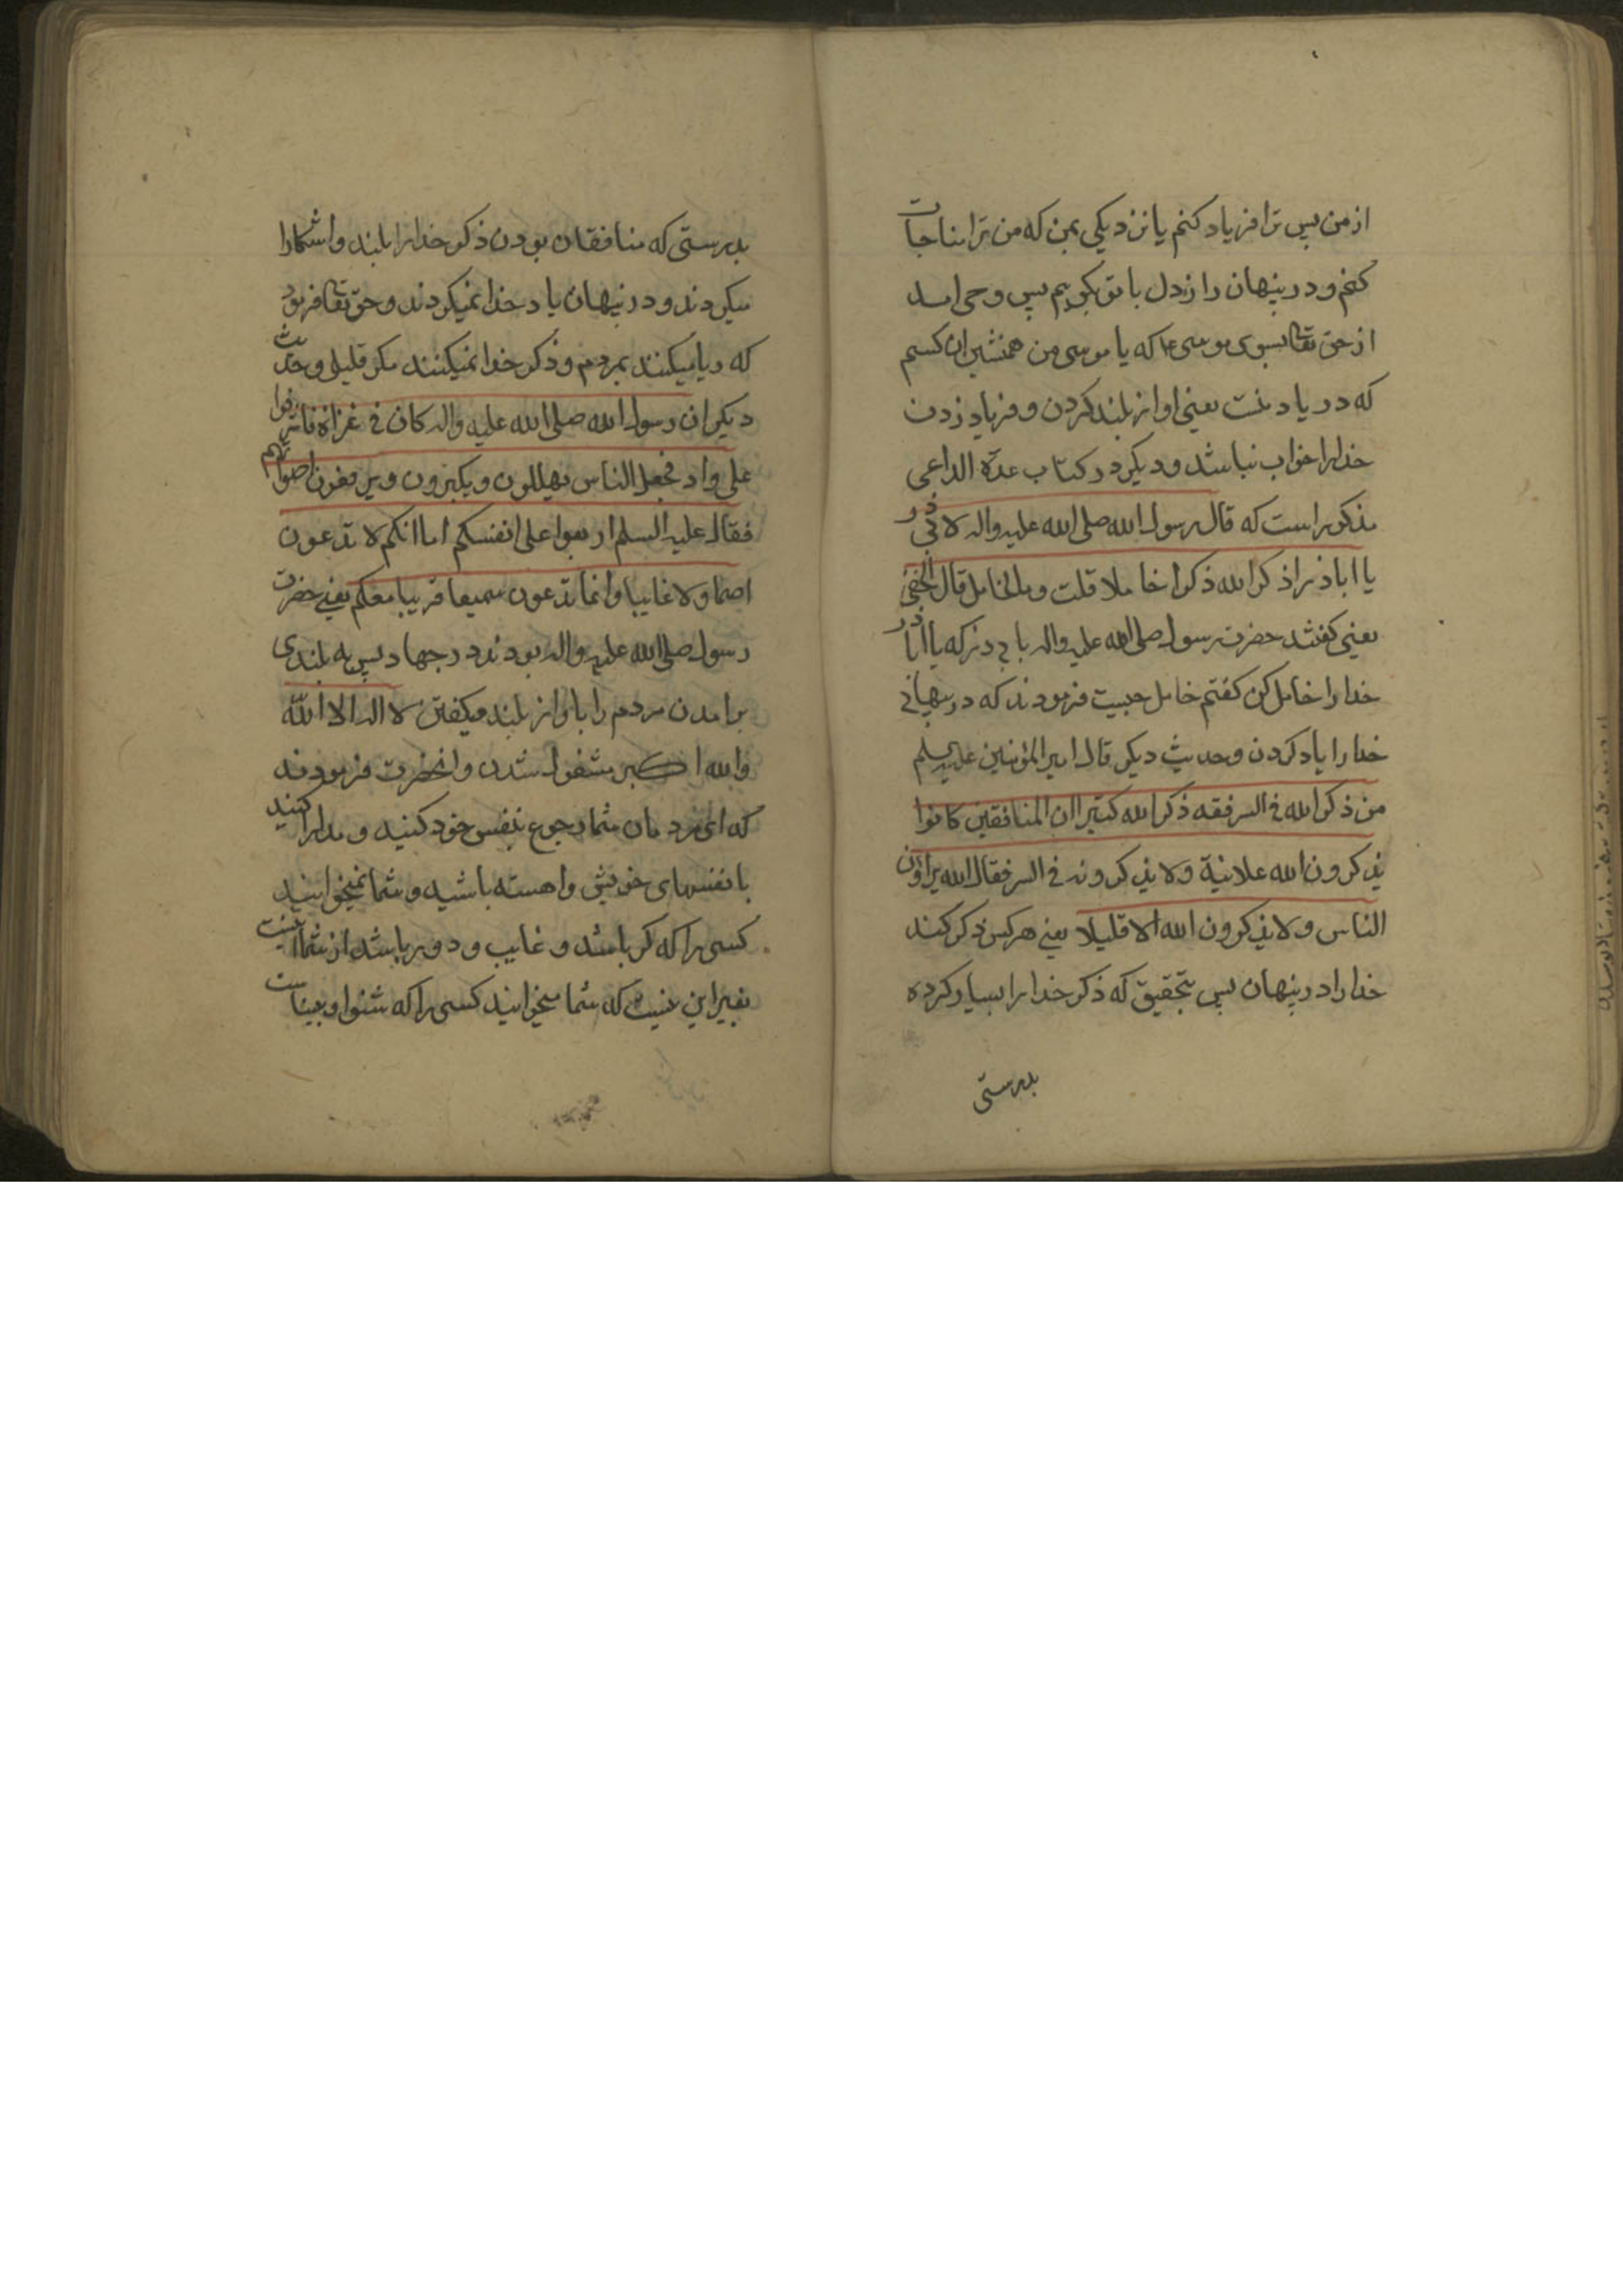 از من پس ترا فریاد کنم یا نزدیکی بمن که من ترا مناجات
کنم و در پنهان راز دل با تو بگویم پس وحی امد
از حق تعالی بسوی موسی ع که یا موسی من همنشین ان کسم
که در یاد منست یعنی اواز بلند کردن و فریاد زدن
خدا را خواب نباشد و دیگر در کتاب عدّة الداعی
مذکور است که قال رسول الله صلی الله علیه واله لابی ذر
یا اباذر اذکر الله ذکرا خاملا قلت وما الخامل قال الخفی
یعنی کفتند حضرت رسول صلی الله علیه واله بابی در که یا ابا ذر
خدا را خامل کن کفتم خامل چیست فرمودند که در پنهانی
خدا را یاد کردن و حدیث دیکر قال امیر المؤمنین علیه السلم
من ذکر الله فی السر فقد ذکر الله کثیرا ان المنافقین کانوا
یذکرون الله علانیة ولا یذکرونه فی السر فقال الله یراؤن
الناس ولا یذکرون الله الا قلیلا یعنی هرکس ذکر کند
خدا را در پنهان پس بتحقیق که ذکر خدا را بسیار کرده
بدرستی
بدرستی که منافقان بودن ذکر خدا را بلند و اشکارا
میکردند و در پنهان یاد خدا نمیکردند و حق تعالی فرمود
که ریا میکنند بمردم و ذکر خدا نمیکنند مکر قلیلی و حدیث
دیکر ان رسول الله صلی الله علیه واله کان فی غزاة فاشرفوا
علی واد فجعل الناس یهللون ویکبرون ویرفعون اصواتهم
فقال علیه السلم اربعوا علی انفسکم اما انکم لا تدعون
اصما ولا غایبا وانما تدعون سمیعا قریبا معکم یعنی حضرت
رسول صلی الله علیه واله بودند در جهاد پس به بلندی
برامدن مردم را باواز بلند میکفتن لا اله الا الله
والله اکبر مشغول شدن وانحضرت فرمودند
که ای مردمان شما رجوع بنفس خود کنید و مدارا کنید
با نفسهای خویش و اهسته باشید و شما نمیخوانید
کسی را که کر باشد و غایب و دور باشد از شما نیست
بغیر این نیست که شما میخوانید کسی را که شنوا و بیناست